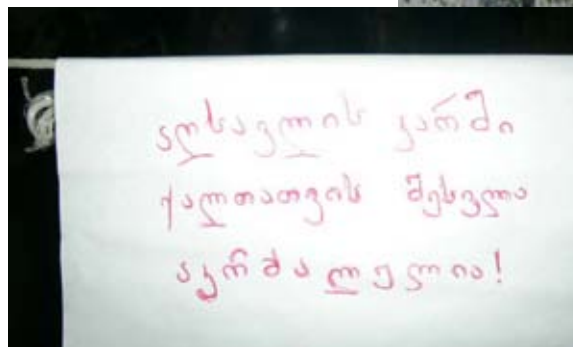 აღსავლის კარში
ქალთათვის შესვლა
აკრძალულია!